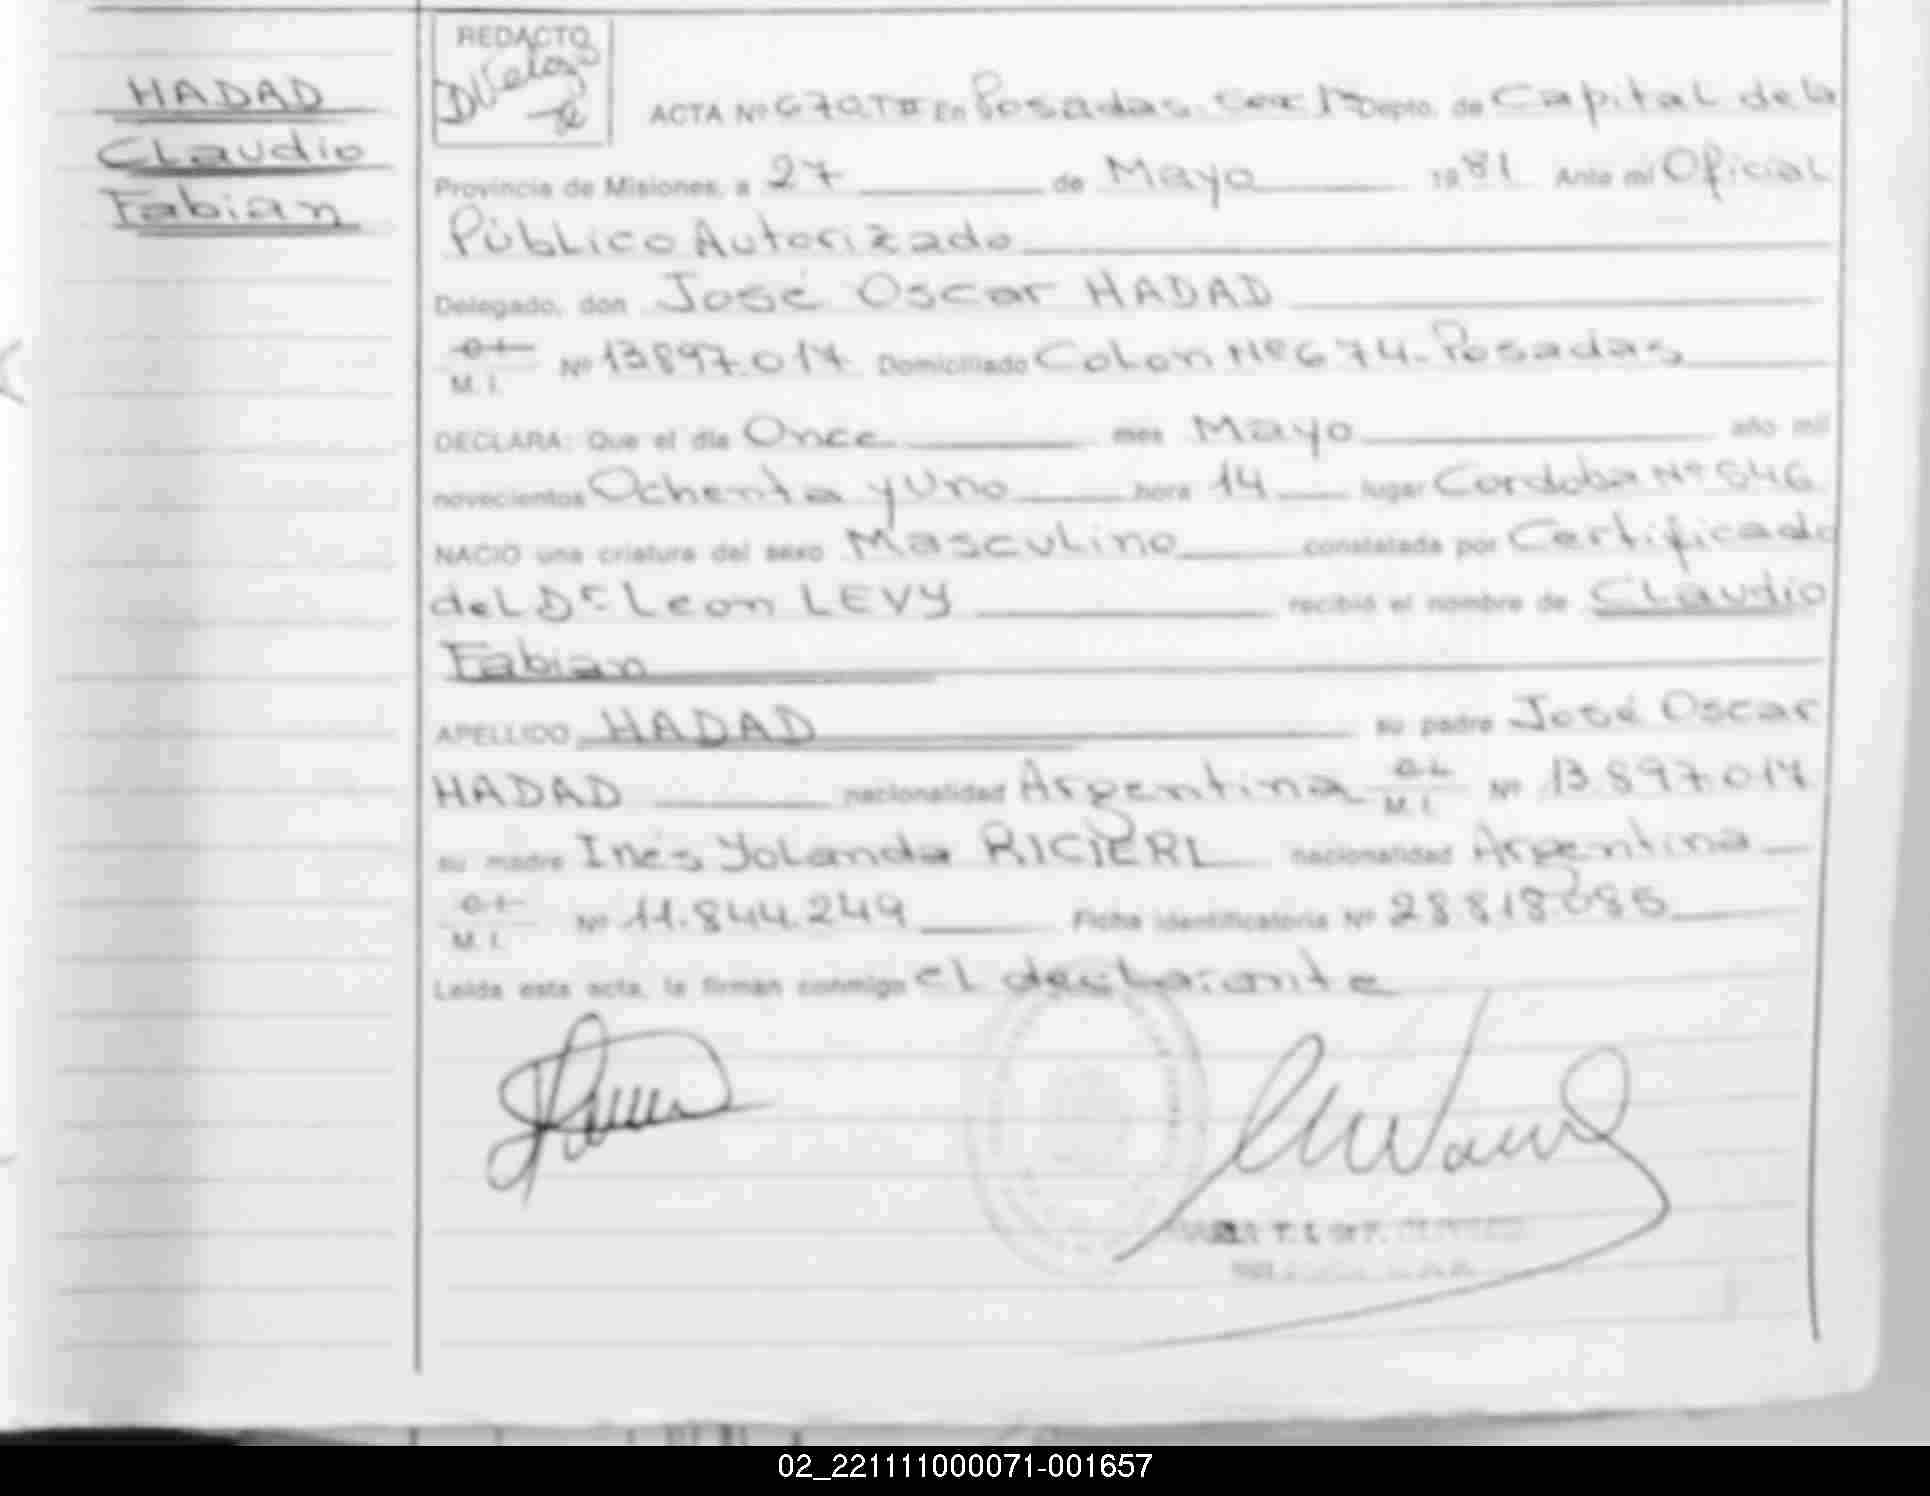 HADAD
Claudio
Fabian
REDACTO
ACTA Nº 670 T II En Posadas. Sec 1ª Depto. de Capital de la
Provincia de Misiones, a 27 de Mayo 1981 Ante mí Oficial
Público Autorizado
Delegado, don José Oscar HADAD
M. I. Nº 13897.017 Domiciliado Colon Nº 674-Posadas
DECLARA: Que el día Once mes Mayo año mil
novecientos Ochenta y Uno hora 14 lugar Cordoba Nº 546
NACIO una criatura del sexo Masculino constatada por Certificado
del Dr Leon LEVY recibió el nombre de Claudio
Fabian
APELLIDO HADAD su padre José Oscar
HADAD nacionalidad Argentina M. I. Nº 13.897.017
su madre Inés Yolanda RICIERI nacionalidad Argentina
M. I. Nº 11.844.249 Ficha identificatoria Nº 28818085
Leída esta acta, la firman conmigo el declarante
02_221111000071-001657